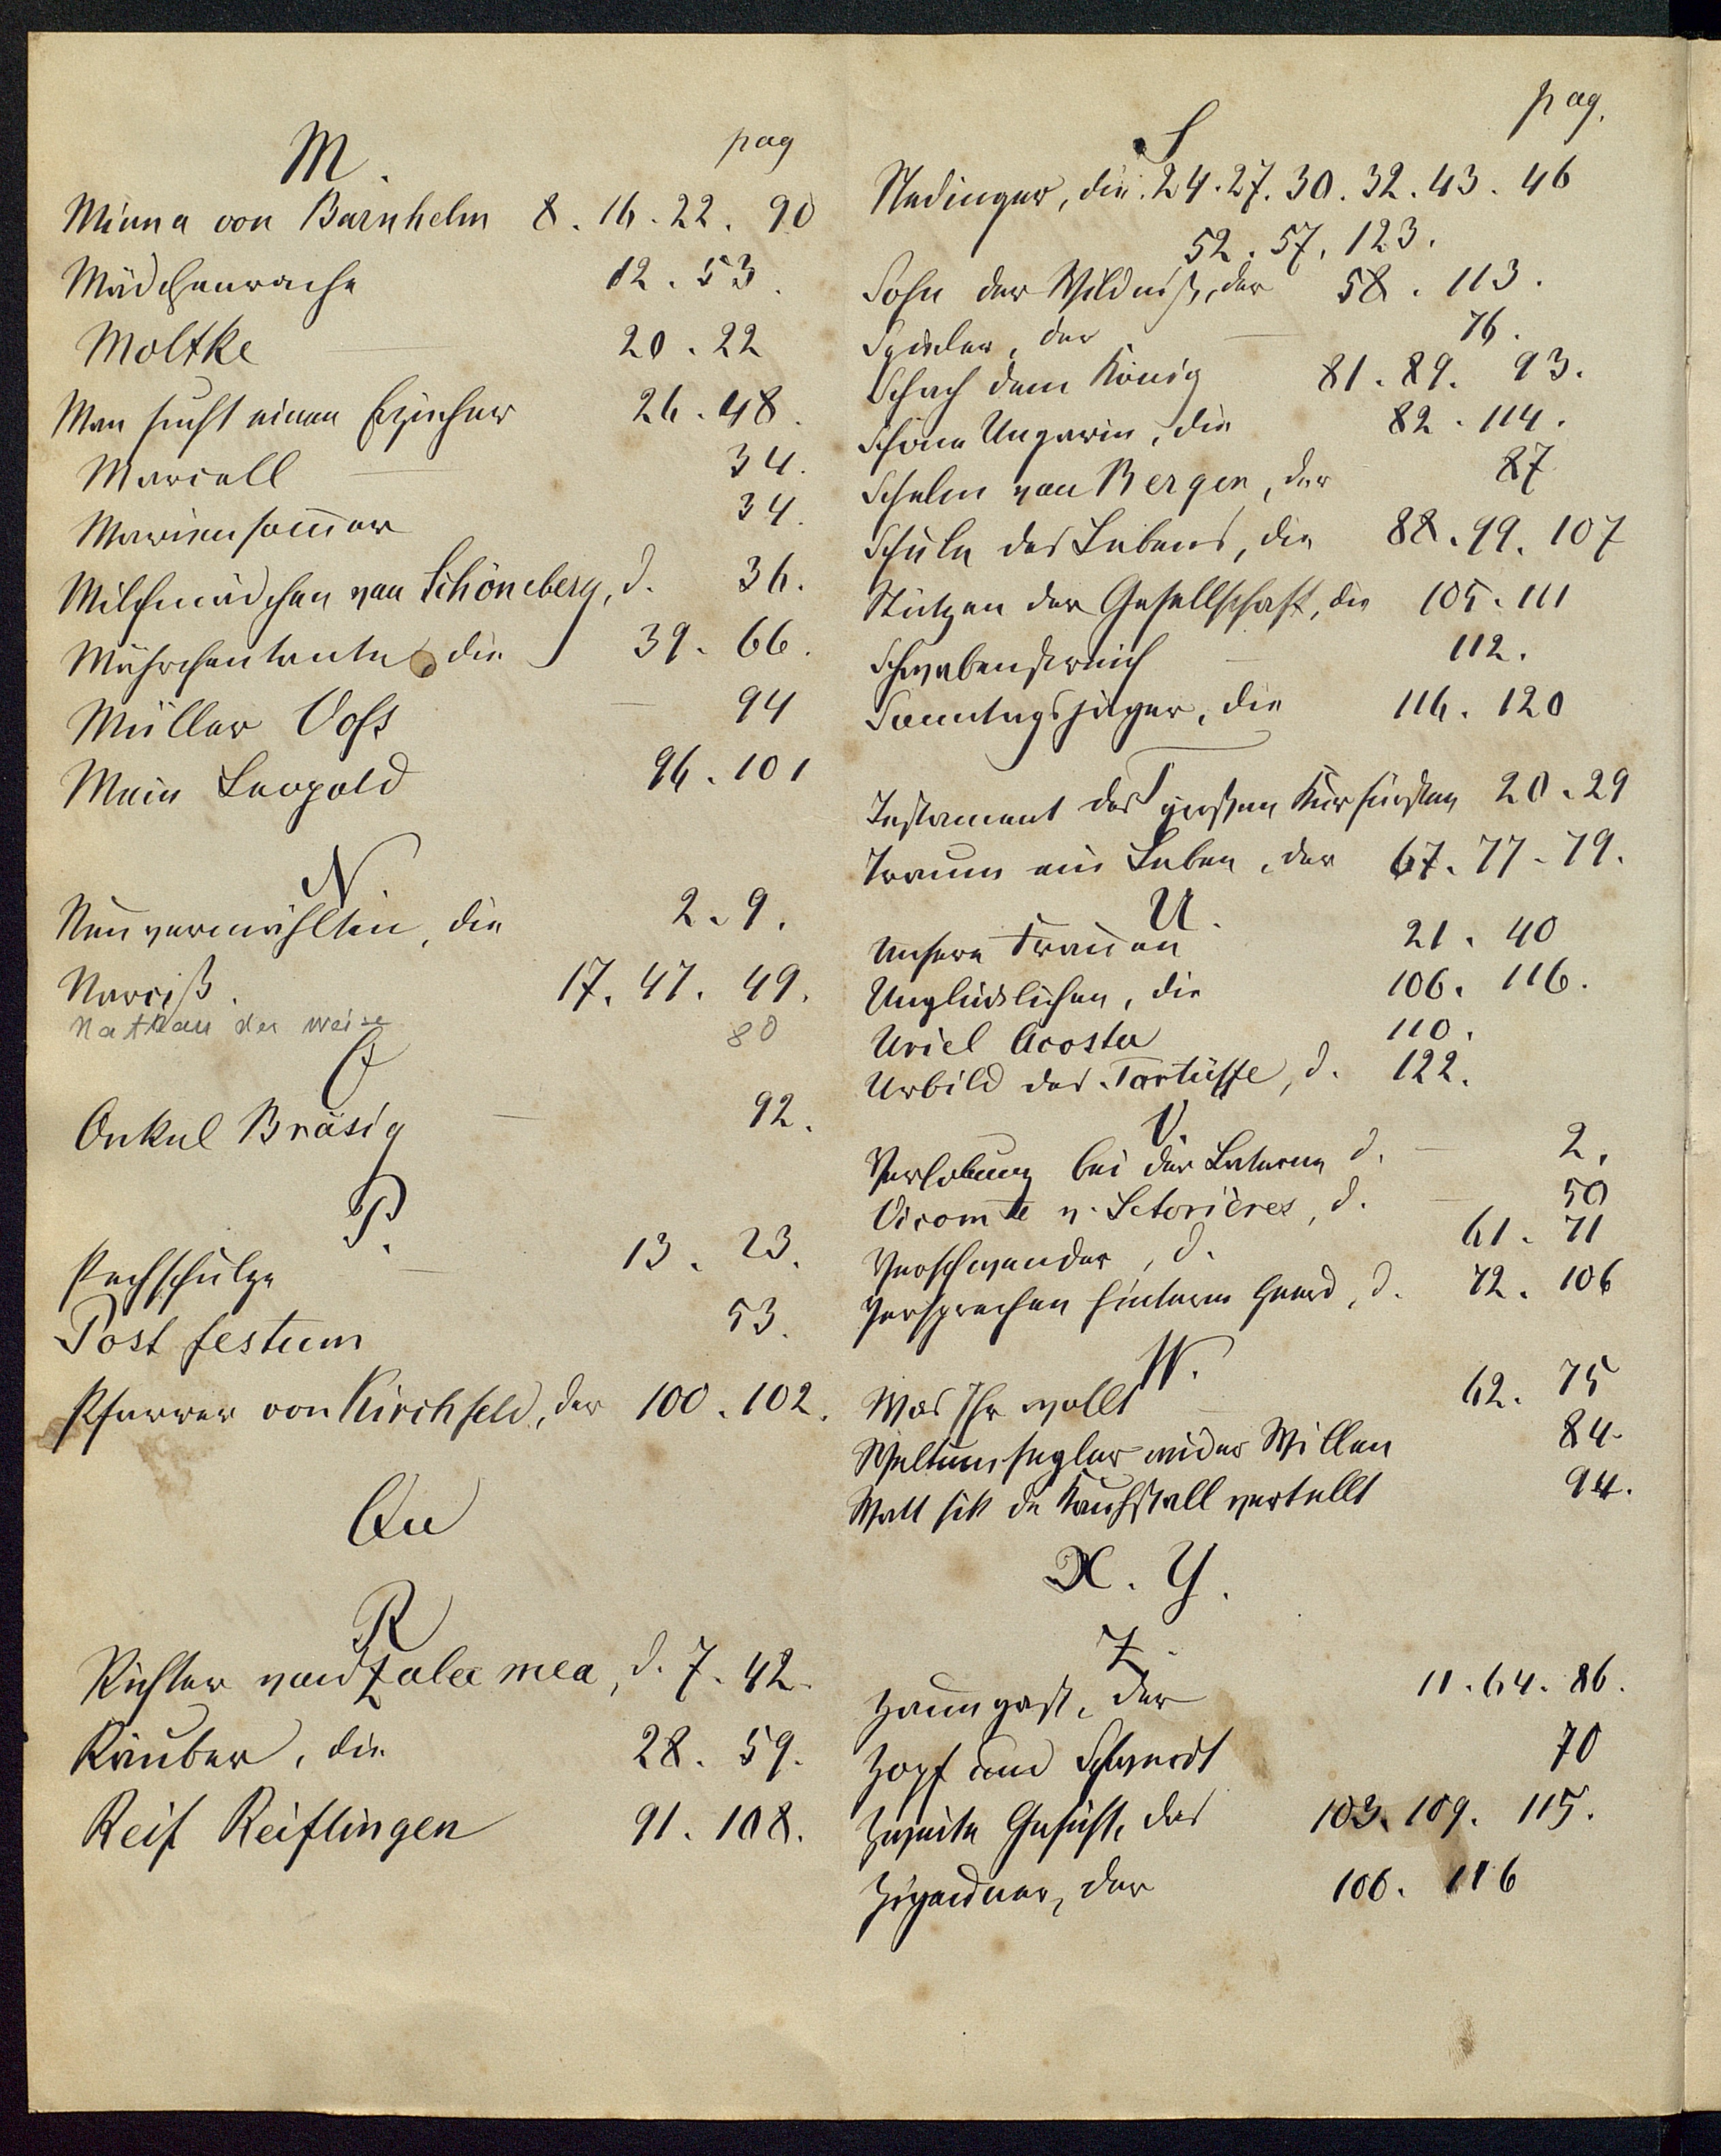 M.
pag
Minna von Barnhelm 8. 16. 22. 90
Mädchenrache 12. 53.
Moltke — 20. 22
Man sucht einen Erzieher 26. 48.
Marcell — 34.
Mariensom̄er 34.
Milchmädchen von Schöneberg, d. 36.
Mährchentante, die 39. 66.
Müller Voß — 94
Mein Leopold 96. 101
N.
Neuvermählten, die 2. 9.
Narciß. 17. 47. 49.
Nathan der Weise 80
O
Onkel Bräsig — 92.
P.
Pechschulze — 13. 23.
Post festum 53.
Pfarrer von Kirchfeld, der 100. 102.
Qu
R
Richter von Zalamea, d. 7. 42.
Räuber, die 28. 59.
Reif Reiflingen 91. 108.
S
pag.
Stedinger, die. 24. 27. 30. 32. 43. 46
52. 57. 123.
Sohn der Wildniß, der 58. 113.
Spieler, der — 76.
Schach dem König 81. 89. 93.
Schöne Ungarin, die 82. 114.
Schelm von Bergen, der 87
Schule des Lebens, die 88. 99. 107
Stützen der Gesellschaft, die 105. 111
Schwabenstreich — 112.
Sonntagsjäger, die 116. 120
T
Testament des großen Kurfürsten 20. 29
Traum ein Leben, der 67. 77. 79.
U.
Unsere Frauen 21. 40
Unglücklichen, die 106. 116.
Uriel Acosta 110.
Urbild des Tartüffe, d. 122.
V.
Verlobung bei der Laterne d. — 2.
Vicomte v. Letorières, d. — 50
Verschwender, d. 61. 71
Versprechen hinterm Heerd, d. 72. 106
W.
Was Ihr wollt — 62. 75
Weltumsegler wider Willen 84.
Watt sik de Kauhstall vertellt 94.
X. Y.
Z.
Zaungast, der 11. 64. 86.
Zopf und Schwerdt 70
Zweite Gesicht, das 103. 109. 115.
Zigeuner, der 106. 116